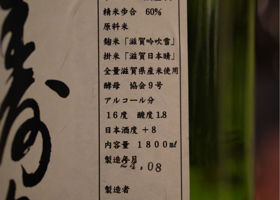 精米歩合 60%
原料米
麹米「滋賀吟吹雪」
掛米「滋賀日本晴」
全量滋賀県産米使用
酵母 協会9号
アルコール分
16度 酸度1.8
日本酒度 +8
内容量 1800㎖
製造年月
24.08
製造者
寿